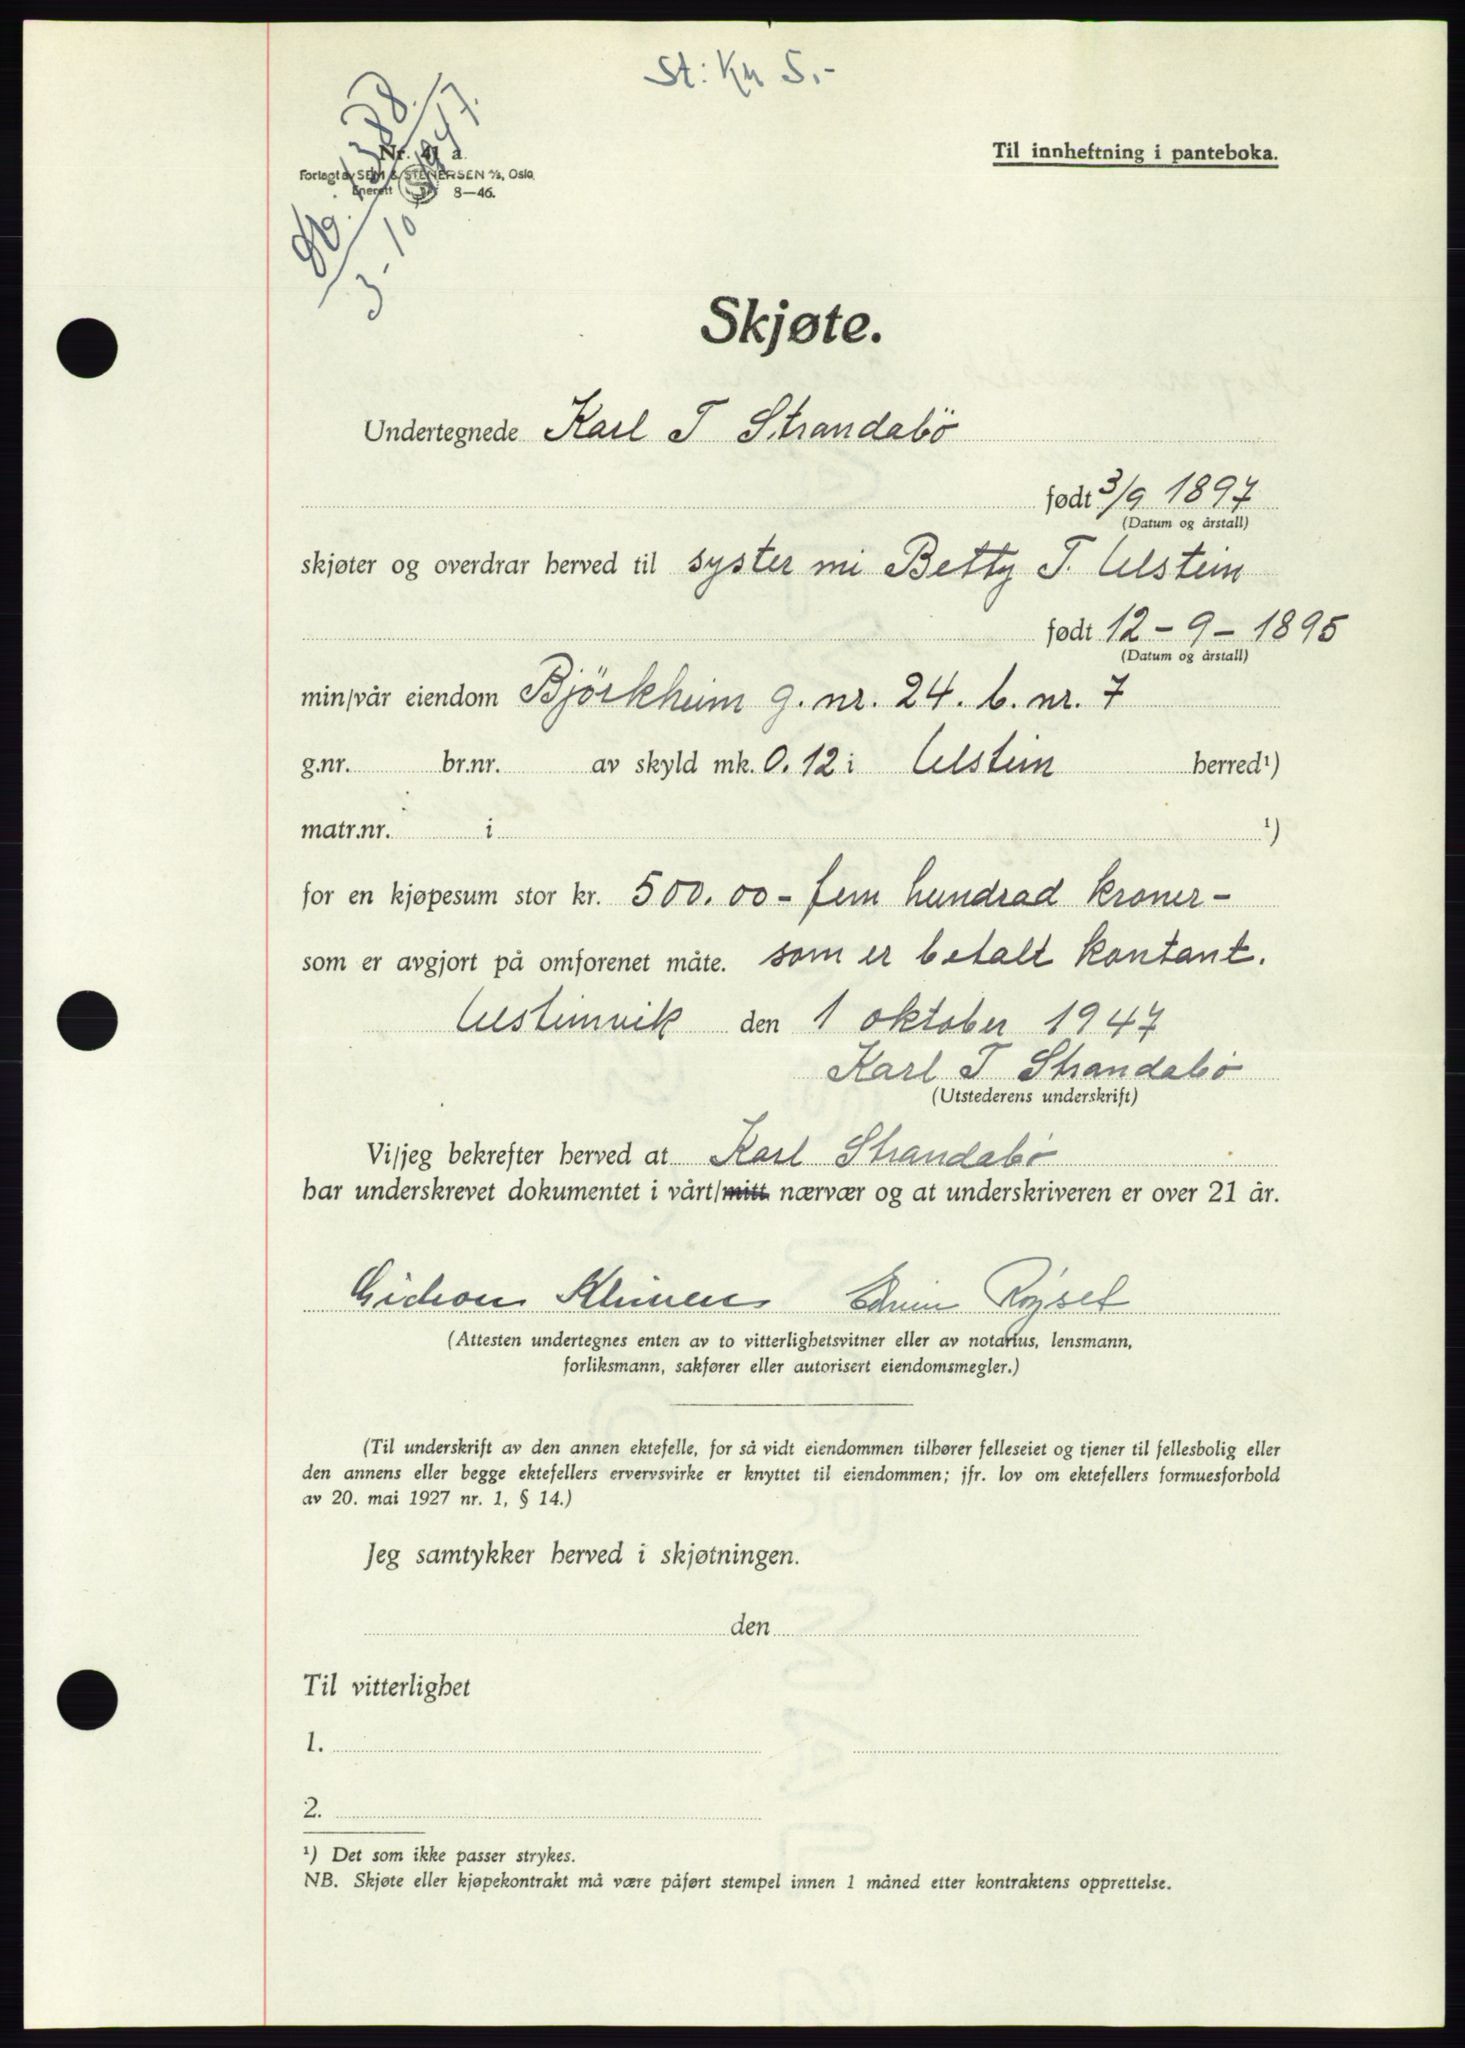 St: Kr 5.-
Dg. 1388.
3-10 1947.
Nr. 41 a
Forlagt av SEM & STENERSEN A/S, Oslo
Enerett 8—46.
Til innheftning i panteboka.
Skjøte.
Undertegnede Karl T Strandabö
født 3/9 1897
(Datum og årstall)
skjøter og overdrar herved til syster mi Betty T. Ulstein
født 12-9-1895
(Datum og årstall)
min/vår eiendom Björkheim g. nr. 24. b. nr. 7
g.nr. br.nr. av skyld mk. 0.12 i Ulstein herred¹)
matr.nr. i ¹)
for en kjøpesum stor kr. 500.00 - fem hundrad kroner -
som er avgjort på omforenet måte. som er betalt kontant.
Ulsteinvik den 1 oktober 1947
Karl T Strandabø
(Utstederens underskrift)
Vi/jeg bekrefter herved at Karl Strandabø
har underskrevet dokumentet i vårt/mitt nærvær og at underskriveren er over 21 år.
Gideon Edvin Røyset
(Attesten undertegnes enten av to vitterlighetsvitner eller av notarius, lensmann,
forliksmann, sakfører eller autorisert eiendomsmegler.)
(Til underskrift av den annen ektefelle, for så vidt eiendommen tilhører felleseiet og tjener til fellesbolig eller
den annens eller begge ektefellers ervervsvirke er knyttet til eiendommen; jfr. lov om ektefellers formuesforhold
av 20. mai 1927 nr. 1, § 14.)
Jeg samtykker herved i skjøtningen.
den
Til vitterlighet
1.
2.
¹) Det som ikke passer strykes.
NB. Skjøte eller kjøpekontrakt må være påført stempel innen 1 måned etter kontraktens opprettelse.